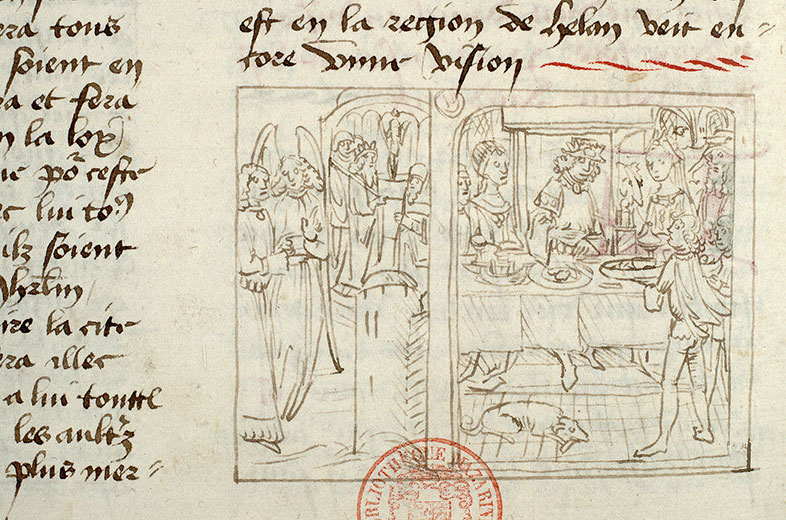 era tous
soient en
ra et fera
n la loy
ceste
lui
ilz soient
ire la cite
era illec
a lui toutte
les
plus mer=
est en la region de helan veit en=
core vnne vision
BIBLIOTHEQUE MAZARIN